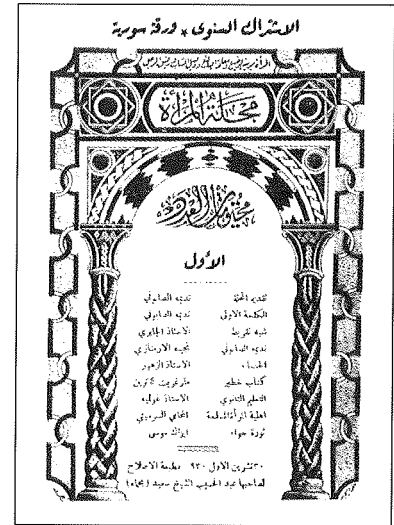 الاشتراك السنوي * ورقة سورية
مجلة المرأة
محتويات العدد
الأول
تقديم المجلة نديمه الصابوني
الكلمة الاولى نديمه الصابوني
شبه تقريظ الاستاذ الجابري
نديمه الصابوني نجيبه الارمنازي
الخنساء الاستاذ الزهور
كتاب خطير
التعليم الثانوي الاستاذ
اهلية المرأة المسلمة المحامي السرميني
ثورة حواء ايزاك موسى
٣٠ تشرين الاول ٩٣٠ مطبعة الاصلاح
لصاحبها عبد الحسيب الشيخ سعيد (بحماه)